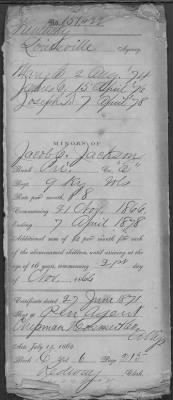 No. 151422
Kentucky
Louisville Agency.
Mary E. 2 Aug. '74
James 15 April '76
Joseph S. 7 April '78
MINORS OF
Jacob C. Jackson
Rank Pvt. Co. "E"
Reg. 9 Ky. Vols
Rate per month, $8
Commencing 21 Nov. 1866
Ending 7 April 1878
Additional sum of $2 per month for each
of the abovenamed children, until arriving at the
age of 16 years, commencing 21st day
of Nov. 1866
Certificate dated 27 June 1871
Sent to Pen Agent
Chipman Hosmer & Co.
Attys
Act July 14, 1862
Book C Vol. 6 Page 215
Clerk.